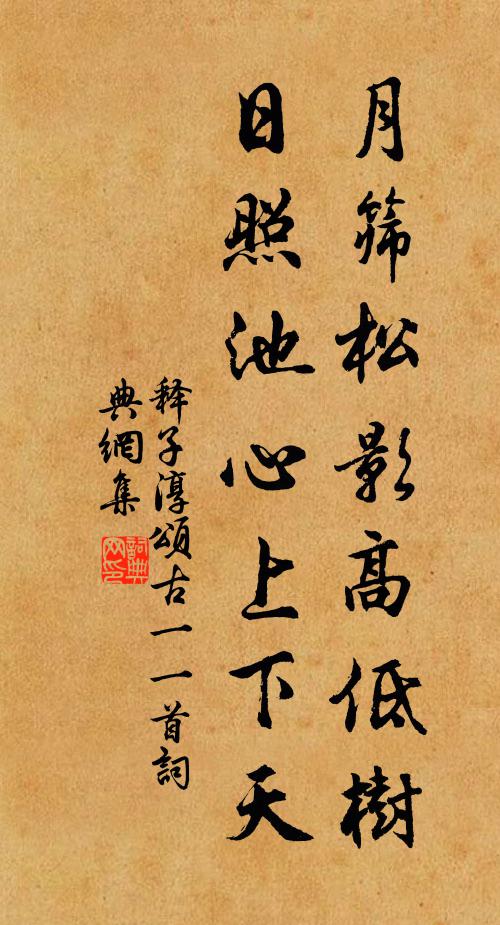 月筛松影高低樹
日照池心上下天
释子淳頌古一一首詞
典網集
詞典網印